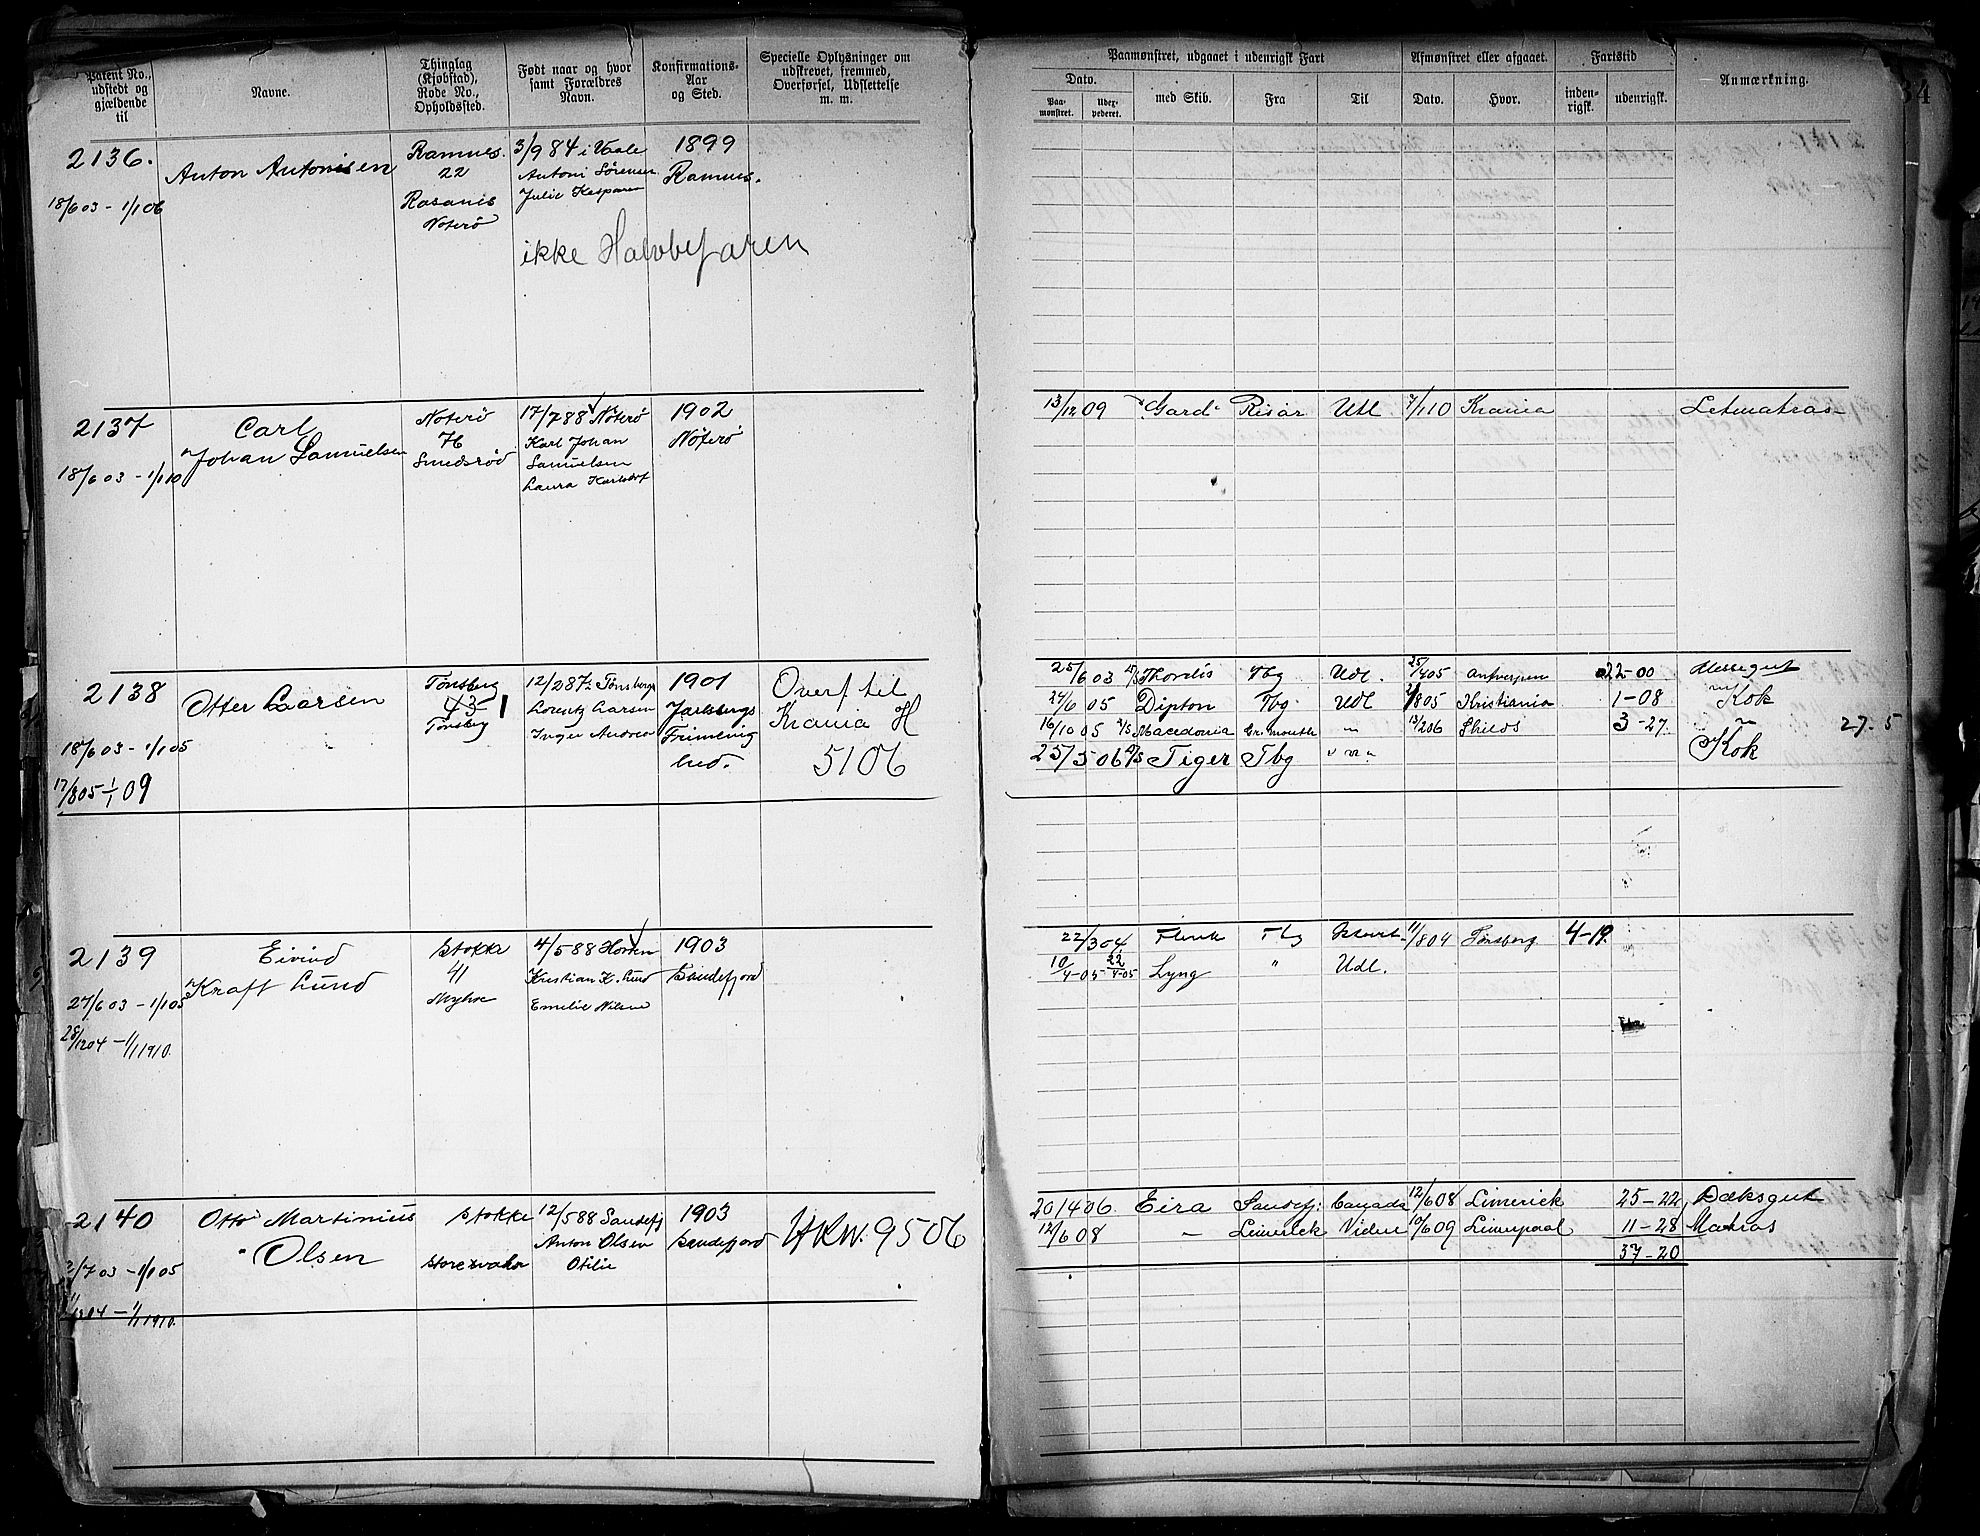 Patent No., udstedt og gjældende til
Navne.
Thinglag (Kjøbstad), Rode No., Opholdssted.
Født naar og hvor samt Forældres Navn.
Konfirmations-Aar og Sted.
Specielle Oplysninger om udskrevet, fremmed, Overførsel, Udslettelse m. m.
Paamønstret, udgaaet i udenrigsk Fart
Dato.
Paa-mønstret.
med Skib.
Fra
Til
Afmønstret eller afgaaet.
Dato.
Hvor.
Fartstid
inden-rigsk.
udenrigsk.
Anmærkning.
34
2136.
18/6 03 - 1/1 06
Anton Antonisen
Ramnes.
22
Rosanis
Nøterø
3/9 84 i Vaale
Antoni Sørensen
Julie Kaspara
1899
Ramnes.
ikke Halvbefaren
2137
18/6 03 - 1/1 10
Carl
Johan Samuelsen
Nøterø
76
Smidsrød
17/7 88 Nøterø
Karl Johan
Samuelsen
Laura Karlsdot
1902
Nøterø
13/12 09 "Gard" Risør Utl 7/1 10 Krania Letmatros
2138
18/6 03 - 1/1 05
17/8 05 1/1 09
Otter Larsen
Tønsberg
43
Tønsberg
12/2 87 Tønsberg
Lorentz Larsen
Inger Andrea
1901
Jarlsbergs
Frimenig
hed.
Overf til
Krania H
5106
25/6 03 Thordis Tbg Udl. 25/4 05 Antverpen 22-00 Messegut
27/6 05 Dipton Tbg Udl 2/8 05 Kristiania 1-08 Kok
16/10 05 Macedonia Gr.mouth " 13/2 06 Shields 3-27. " 27.5
25/5 06 Tiger Tbg Kok
2139
27/6 03 - 1/1 05
28/12 04 - 1/1 1910.
Eivind
Kraft Lund
Stokke
41
Myhre
4/5 88 Horten
Kristian K. Lund
Emelie Nilsen
1903
Sandefjord
22/3 04 Tbg 11/8 04 Tønsberg 4-19.
10/4-05 22/4-05 Lyng " Udl.
2140
2/7 03 - 1/1 05
- 1/1 1910.
Otto Martinius
Olsen
Stokke
12/5 88 Sandefj
Anton Olsen
Otilie
1903
Sandefjord
9506
20/4 06. Eira Sandefj: Canada 12/6 08 Limerick 25-22 Dæksgut
12/6 08 " Limerick Videre 10/6 09 Liverpool 11-28 Matros
37-20